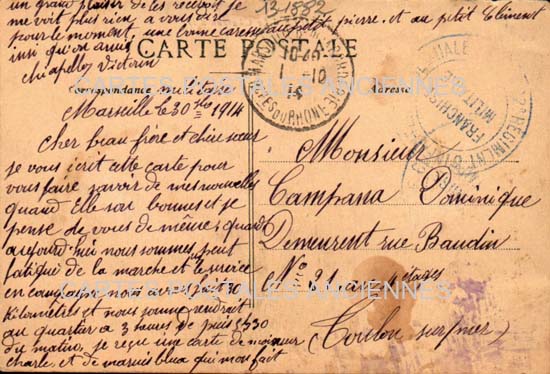 un grand plaisir de les recevoir je
me voit plus rien, a vous dire
pour le moment, une bonne caresse au petit pierre, et au petit Clément
insi qu'on amis
Chiapello Victorin
131882
CARTE POSTALE
Correspondance militaire
Adresse
Marseille le 30 7bre 1914
Cher beau frère et chère sœur
je vous écrit cette carte pour
vous faire savoir de mes nouvelles
quand Elle son bonnes et je
pense de vous de même; quand
aujourd'hui nous sommes peut
fatigué de la marche et le service
en campagne nous avons fait 30
Kilomètres et nous sonne rendrait
au quartier a 3 heures de puis 5h30
du matin, je reçu une carte de monsieur
charle, et de
qui mon fait
Monsieur
Campana Dominique
Demeurent rue Baudin
N° 31 au 4 étages
Toulon sur/mer
MARSEILLE
10
14
BOUCHES DU RHONE
RÉGIMENT
FRANCHISE
MILIT
CARTES POSTALES ANCIENNES
CARTES POSTALES ANCIENNES